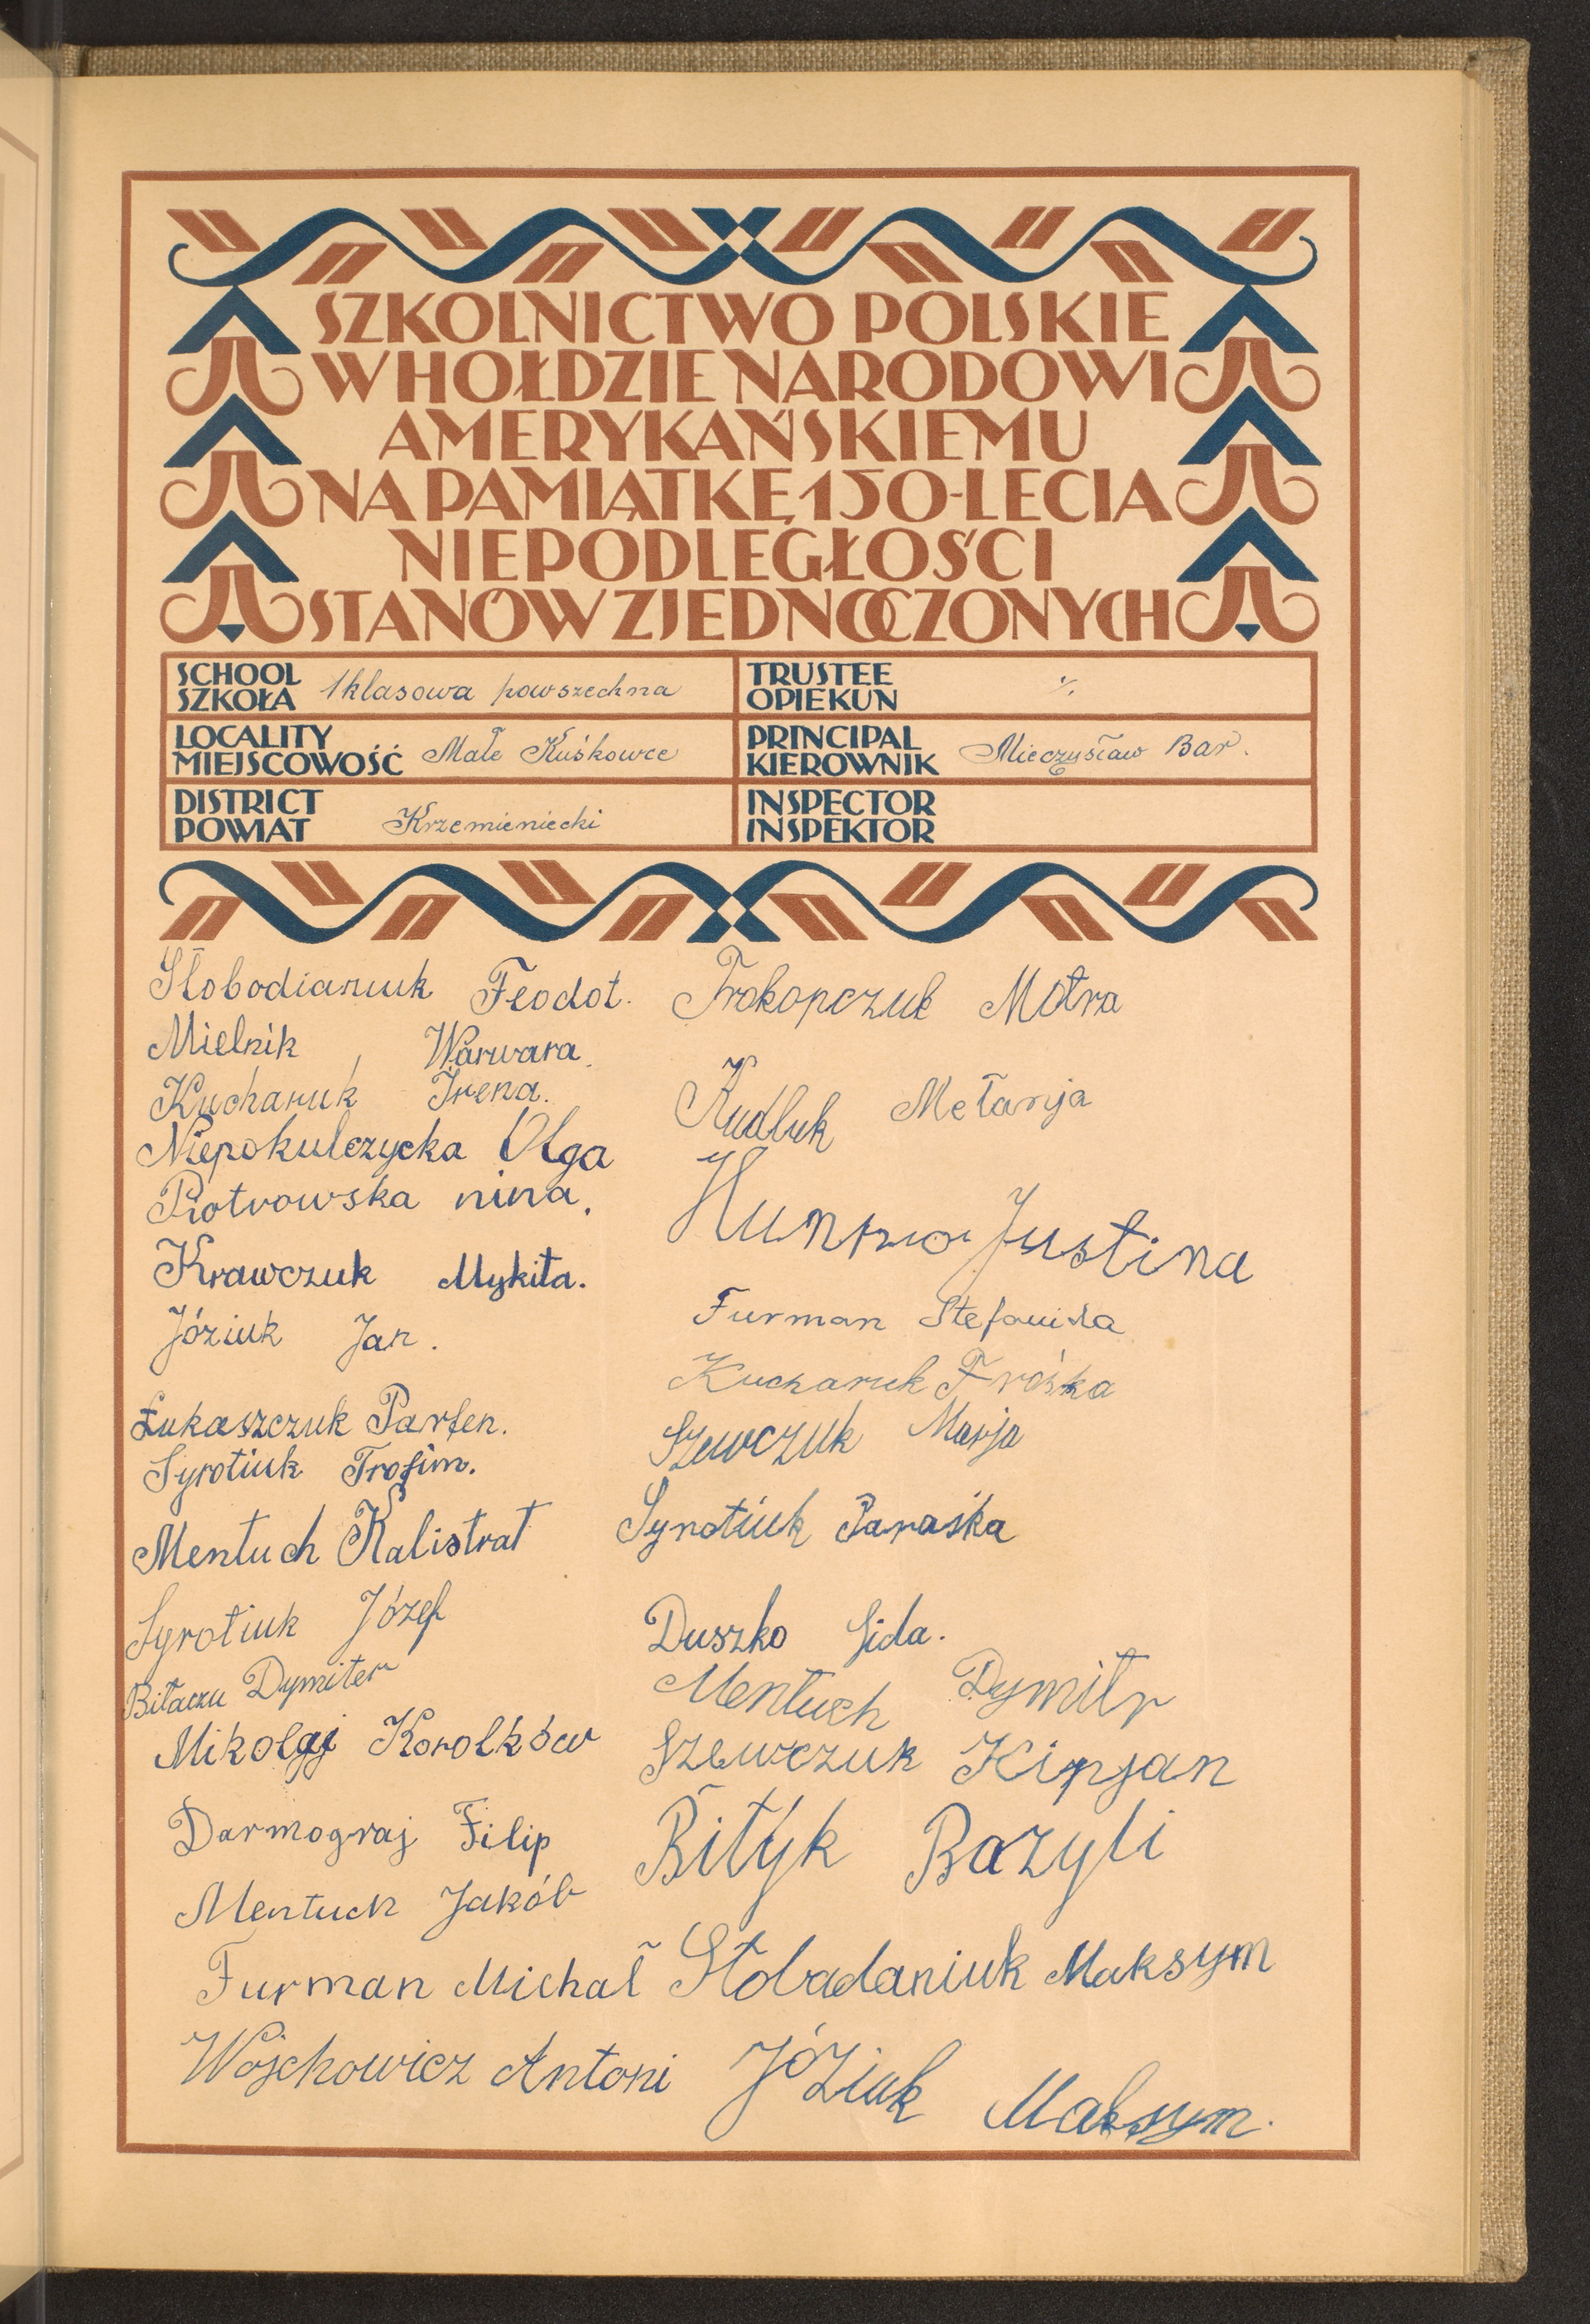 SZKOLNICTWO POLSKIE
W HOŁDZIE NARODOWI
AMERYKAŃSKIEMU
NA PAMIĄTKĘ 150-LECIA
NIEPODLEGŁOŚCI
STANÓW ZJEDNOCZONYCH
SCHOOL
SZKOŁA 1klasowa powszechna
TRUSTEE
OPIEKUN
LOCALITY
MIEJSCOWOŚĆ Małe Kuśkowce
PRINCIPAL
KIEROWNIK Mieczysław Bar.
DISTRICT
POWIAT Krzemieniecki
INSPECTOR
INSPEKTOR
Słobodianiuk Feodot.
Mielnik Warwara.
Kucharuk Irena.
Niepokulczycka Olga
Piotrowska nina.
Krawczuk Mykita.
Józiuk Jan.
Łukaszczuk Parfen.
Syrotiuk Trofim.
Mentuch Kalistrat
Syrotiuk Józef
Dymiter
Mikołaj Korolków
Darmograj Filip
Mentuch Jakób
Furman Michał
Wojchowicz Antoni
Prokopczuk Motra
Rudluk Mełanja
Justina
Furman Stefanida
Kucharuk Frośka
Szewczuk Marja
Syrotiuk Paraśka
Duszko Sida.
Mentuch Dymitr
Szewczuk Kipjan
Biłyk Bazyli
Słobadaniuk Maksym
Józiuk Maksym.